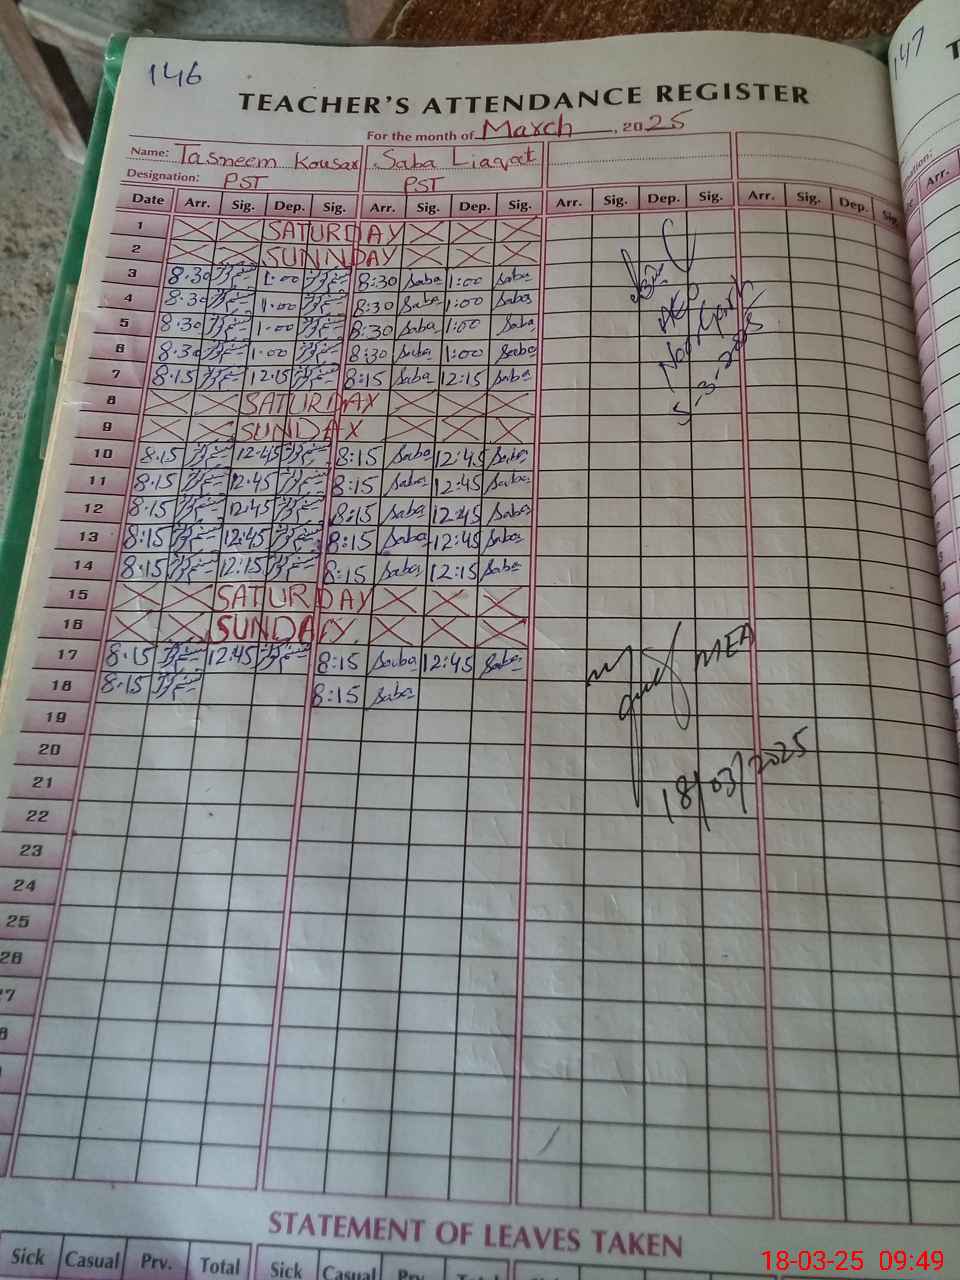 146
147
TEACHER'S ATTENDANCE REGISTER
For the month of March, 2025
Name: Tasneem Kousar Saba Liaqat
Designation: PST PST
Date Arr. Sig. Dep. Sig. Arr. Sig. Dep. Sig. Arr. Sig. Dep. Sig. Arr. Sig. Dep. Sig.
1 SATURDAY
2 SUNNDAY
3 8:30 1:00 8:30 Saba 1:00 Saba
4 8:30 1:00 8:30 Saba 1:00 Saba
5 8:30 1:00 8:30 Saba 1:00 Saba
6 8:30 1:00 8:30 Saba 1:00 Saba
7 8:15 12:15 8:15 Saba 12:15 Saba
8 SATURDAY
9 SUNDAY
10 8:15 12:45 8:15 Saba 12:45 Saba
11 8:15 12:45 8:15 Saba 12:45 Saba
12 8:15 12:45 8:15 Saba 12:45 Saba
13 8:15 12:45 8:15 Saba 12:45 Saba
14 8:15 12:15 8:15 Saba 12:15 Saba
15 SATURDAY
16 SUNDAY
17 8:15 12:45 8:15 Saba 12:45 Saba
18 8:15 8:15 Saba
19
20
21
22
23
24
25
26
5-3-2025
MEA
18/03/2025
STATEMENT OF LEAVES TAKEN
Sick Casual Prv. Total Sick Casual Prv. Total
18-03-25 09:49